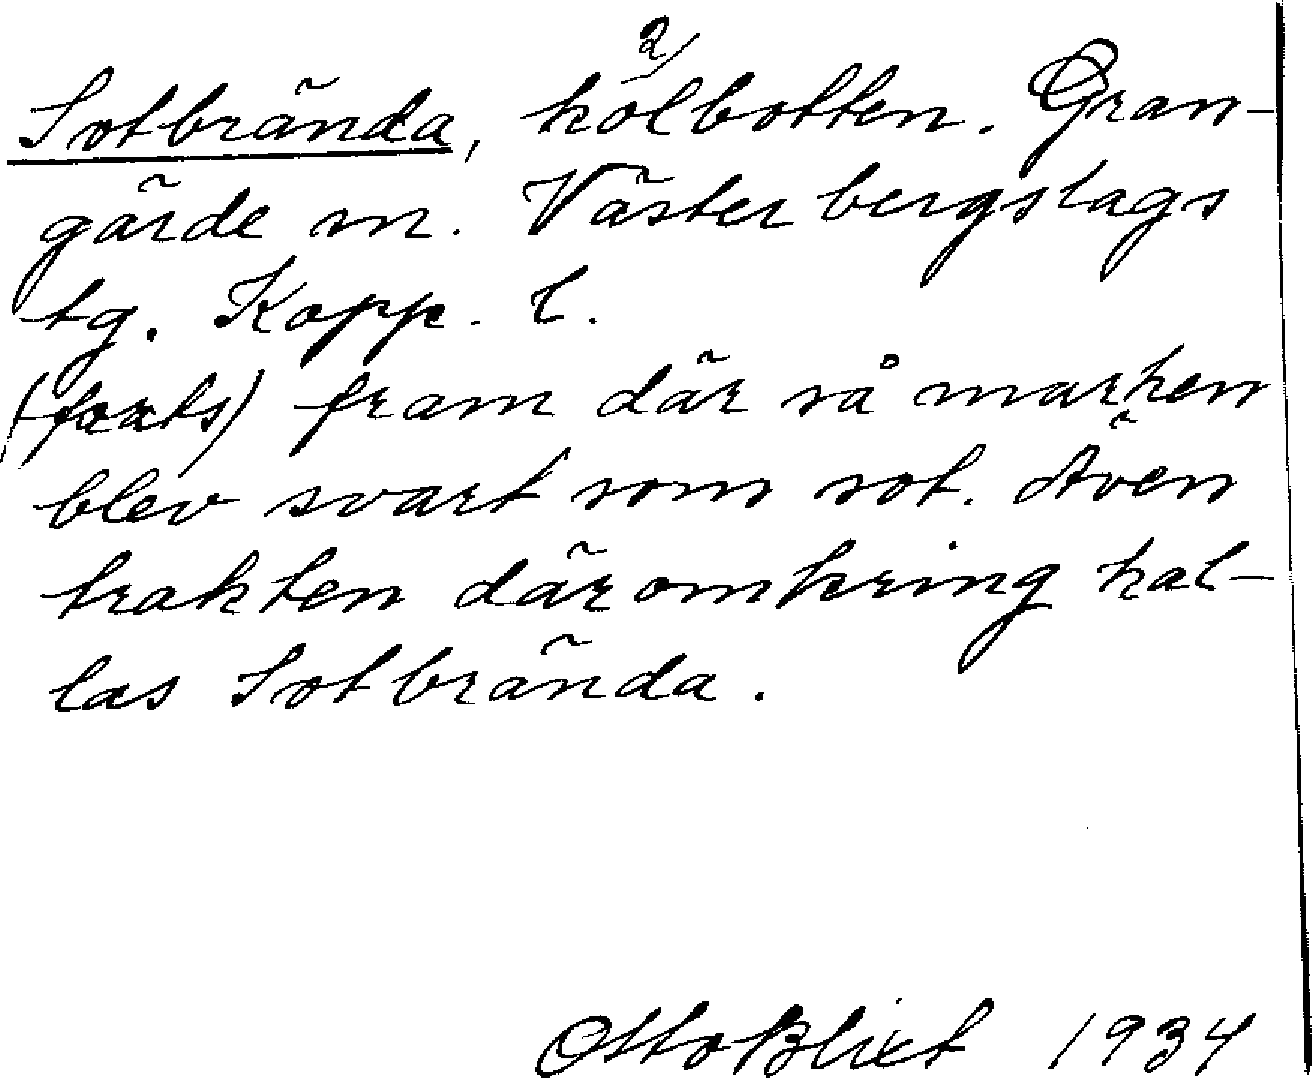 2/
Sotbrända, kolbotten. Gran-
gärde sn. Västerbergslags
tg. Kopp. l.
(forts) fram där så marken
blev svart som sot. Även
trakten däromkring kal-
las Sotbrända.
Otto Blixt 1934